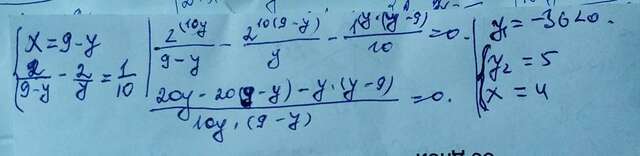 x = 9 - y
2/(9-y) - 2/y = 1/10
2^(10y/(9-y) - 2^10(9-y)/y - y·(y-9)/10 = 0.
(20y - 20(9-y) - y·(y-9))/(10y·(9-y)) = 0.
y₁ = -36<0.
y₂ = 5
x = 4